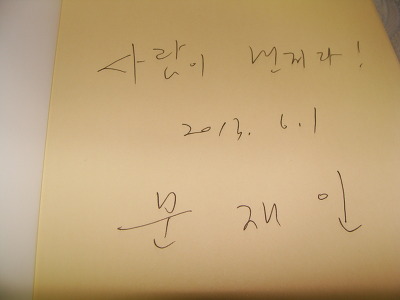 사람이 먼저다!
2013. 6. 1
문 재 인